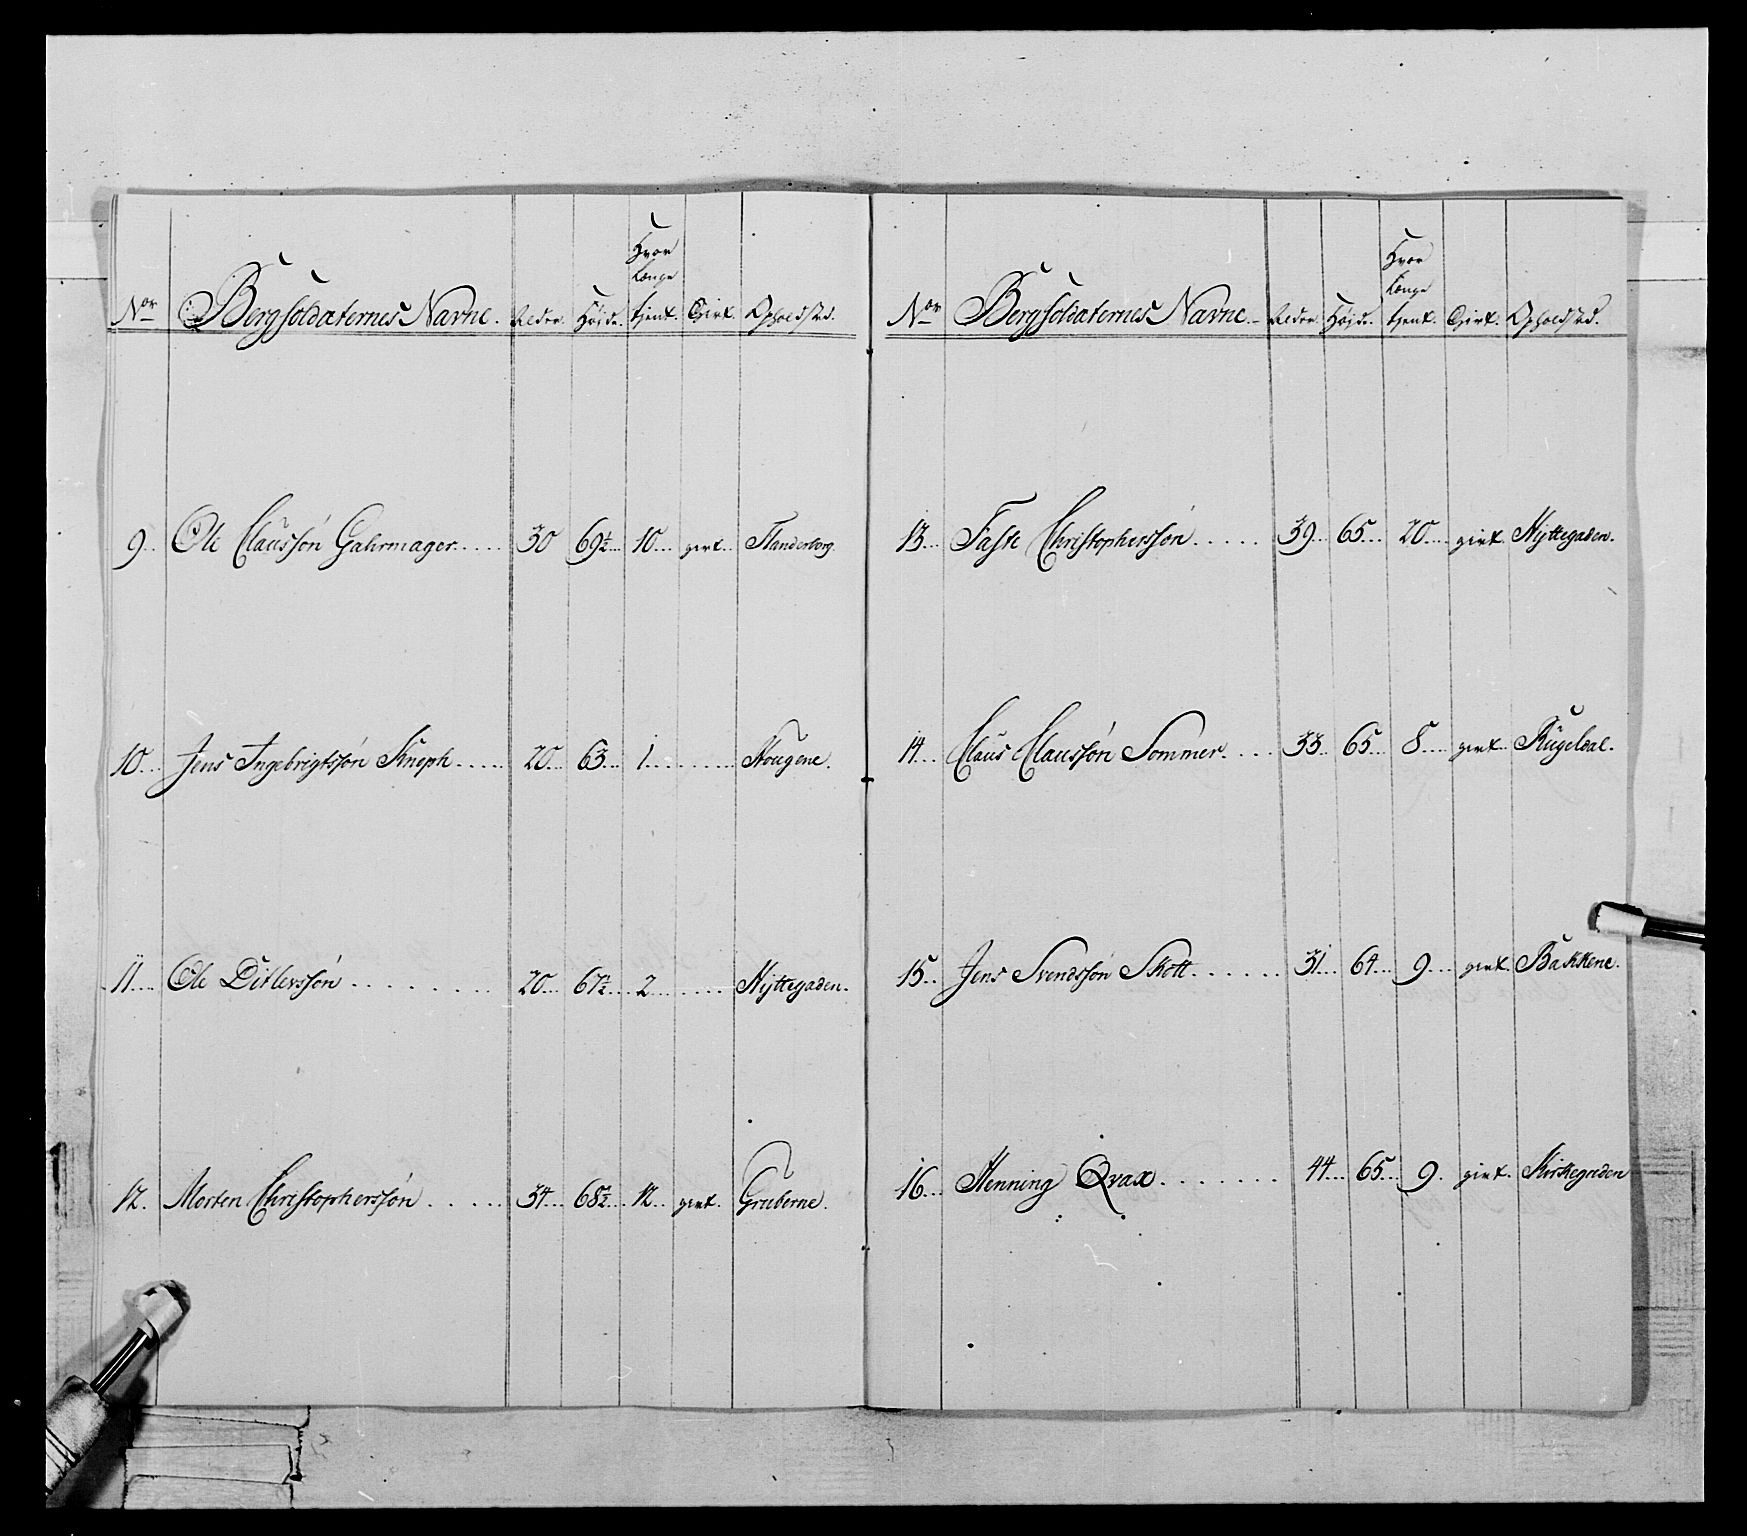 Nor Bergsoldaternes Navne. Alder. Højde. Hvor Længe tjent. Givt. Opholdstd.
9.. Ole Claussøn Gahrmager..... 30 69½... 10... givt.. Flanderborg.
10... Jens Ingebrigtsøn Knoph..... 20... 63... 1... ..... Hougene.
11.... Ole Ditlevssøn ........ 20... 67½.. 2... ..... Hyttegaden.
12. Morten Christophersøn ..... 34... 68½... 12.. givt. Gruberne.
Nor Bergsoldaternes Navne.. Alder. Højde. Hvor Længe tjent. Givt. Opholdstd.
13... Faste Christophersøn ..... 39.. 65... 20... givt. Hyttegaden.
14... Claus Claussøn Sommer.... 33.. 65... 8.... givt.. Kugeldal.
15.. Jens Svendssøn Skott...... 31... 64... 9... givt. Bakkene.
16... Henning Qvax....... 44... 65... 9. givt. Kirkegaden